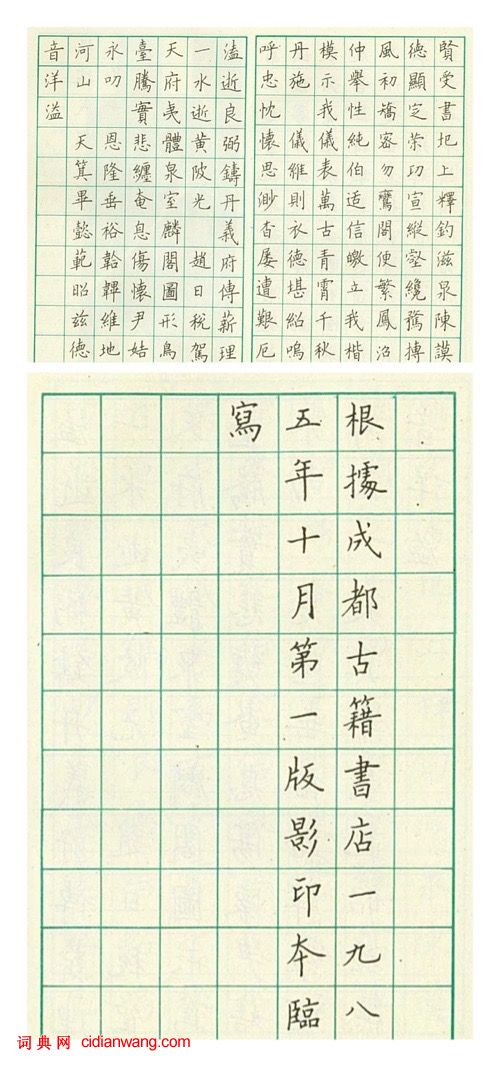 賢受書圯上釋釣滋泉陳謨
德顯定榮功宣縱壑纔騖搏
風初矯密勿鸞閣便繁鳳沼
仲舉性純伯适信皦立我楷
模示我儀表萬古青霄千秋
丹施 儀維則衣德堪紹嗚
呼忠忱懷思渺杳屢遭艱厄
溘逝良弼鑄丹義府傅薪理
一水逝黃陂光 趙日稅駕
天府夷體泉室麟閣圖形鳥
臺騰實悲纏奄息傷懷尹姞
永叨 恩隆垂裕韐韠維地
河山 天箕畢懿範昭茲德
音洋溢
根據成都古籍書店一九八
五年十月第一版影印本臨
寫
词典网 cidianwang.com